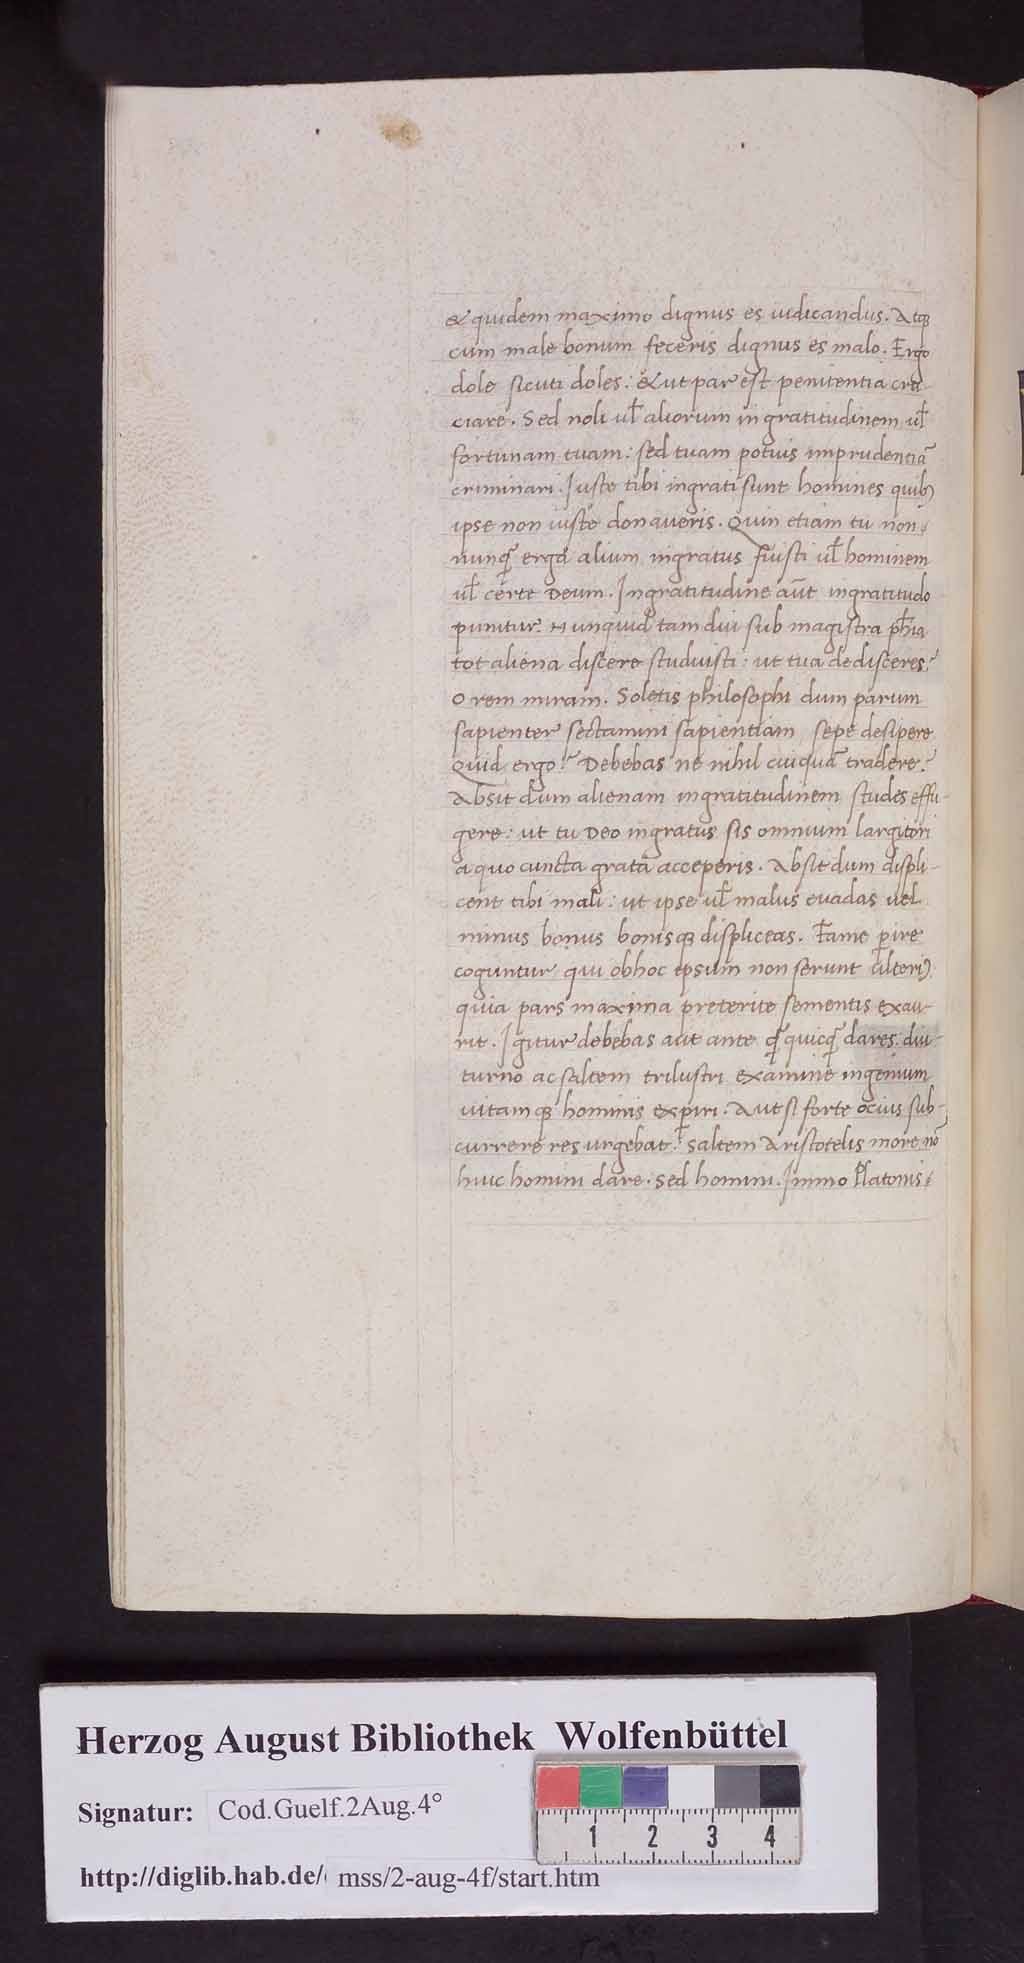 & quidem maximo dignus es iudicandus. Atqꝫ
cum male bonum feceris dignus es malo. Ergo
dole sicuti doles: & ut par est penitentia cru-
ciare. Sed noli ul̄ aliorum ingratitudinem ul̄
fortunam tuam: sed tuam potius imprudentiā
criminari. Iuste tibi ingrati sunt homines quibꝫ
ipse non iuste donaueris. Quin etiam tu non-
nunq̄ erga alium ingratus fuisti ul̄ hominem
ul̄ certe Deum. Ingratitudine aūt ingratitudo
punitur. Nunquid tam diu sub magistra ph̄ia
tot aliena discere studuisti: ut tua dedisceres?
O rem miram. Soletis philosophi dum parum
sapienter sectamini sapientiam sepe desipere.
Quid ergo? Debebas ne nihil cuiquā tradere?
Absit dum alienam ingratitudinem studes effu-
gere: ut tu Deo ingratus sis omnium largitori
a quo cuncta grata acceperis. Absit dum displi-
cent tibi mali: ut ipse ul̄ malus euadas uel
minus bonus bonisqꝫ displiceas. Fame ꝑire
coguntur qui ob hoc ipsum non serunt alteriꝰ
quia pars maxima preterite sementis exau-
rit. Igitur debebas aut ante q̄ quicq̄ dares: diu-
turno ac saltem trilustri examine ingenium
uitamqꝫ hominis exꝑiri. Aut si forte ocius sub-
currere res urgebat: saltem Aristotelis more nō
huic homini dare. sed homini. Immo Platonis-
Herzog August Bibliothek Wolfenbüttel
Signatur: Cod.Guelf.2Aug.4°
http://diglib.hab.de/ mss/2-aug-4f/start.htm
1 2 3 4